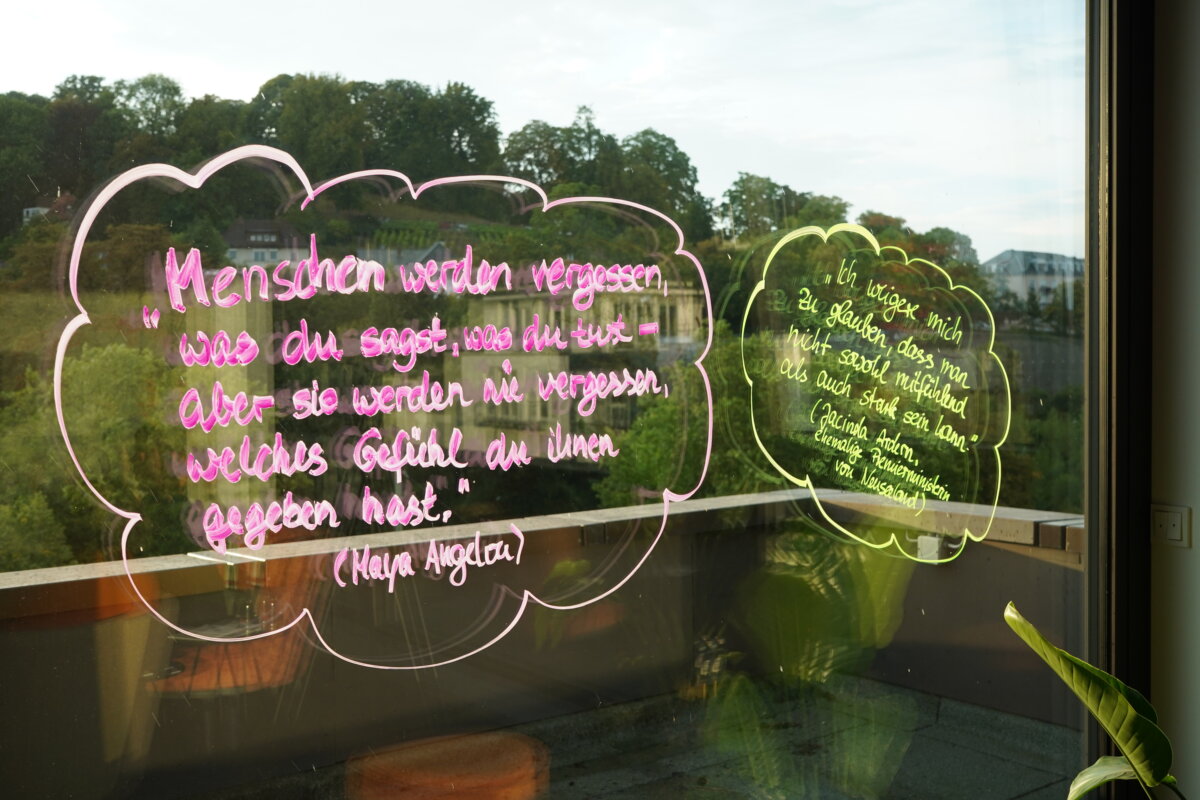 „Menschen werden vergessen,
was du sagst, was du tust –
aber sie werden nie vergessen,
welches Gefühl du ihnen
gegeben hast."
(Maya Angelou)
„Ich weigere mich
zu glauben, dass man
nicht sowohl mitfühlend
als auch stark sein kann."
(Jacinda Ardern,
ehemalige Premierministerin
von Neuseeland)